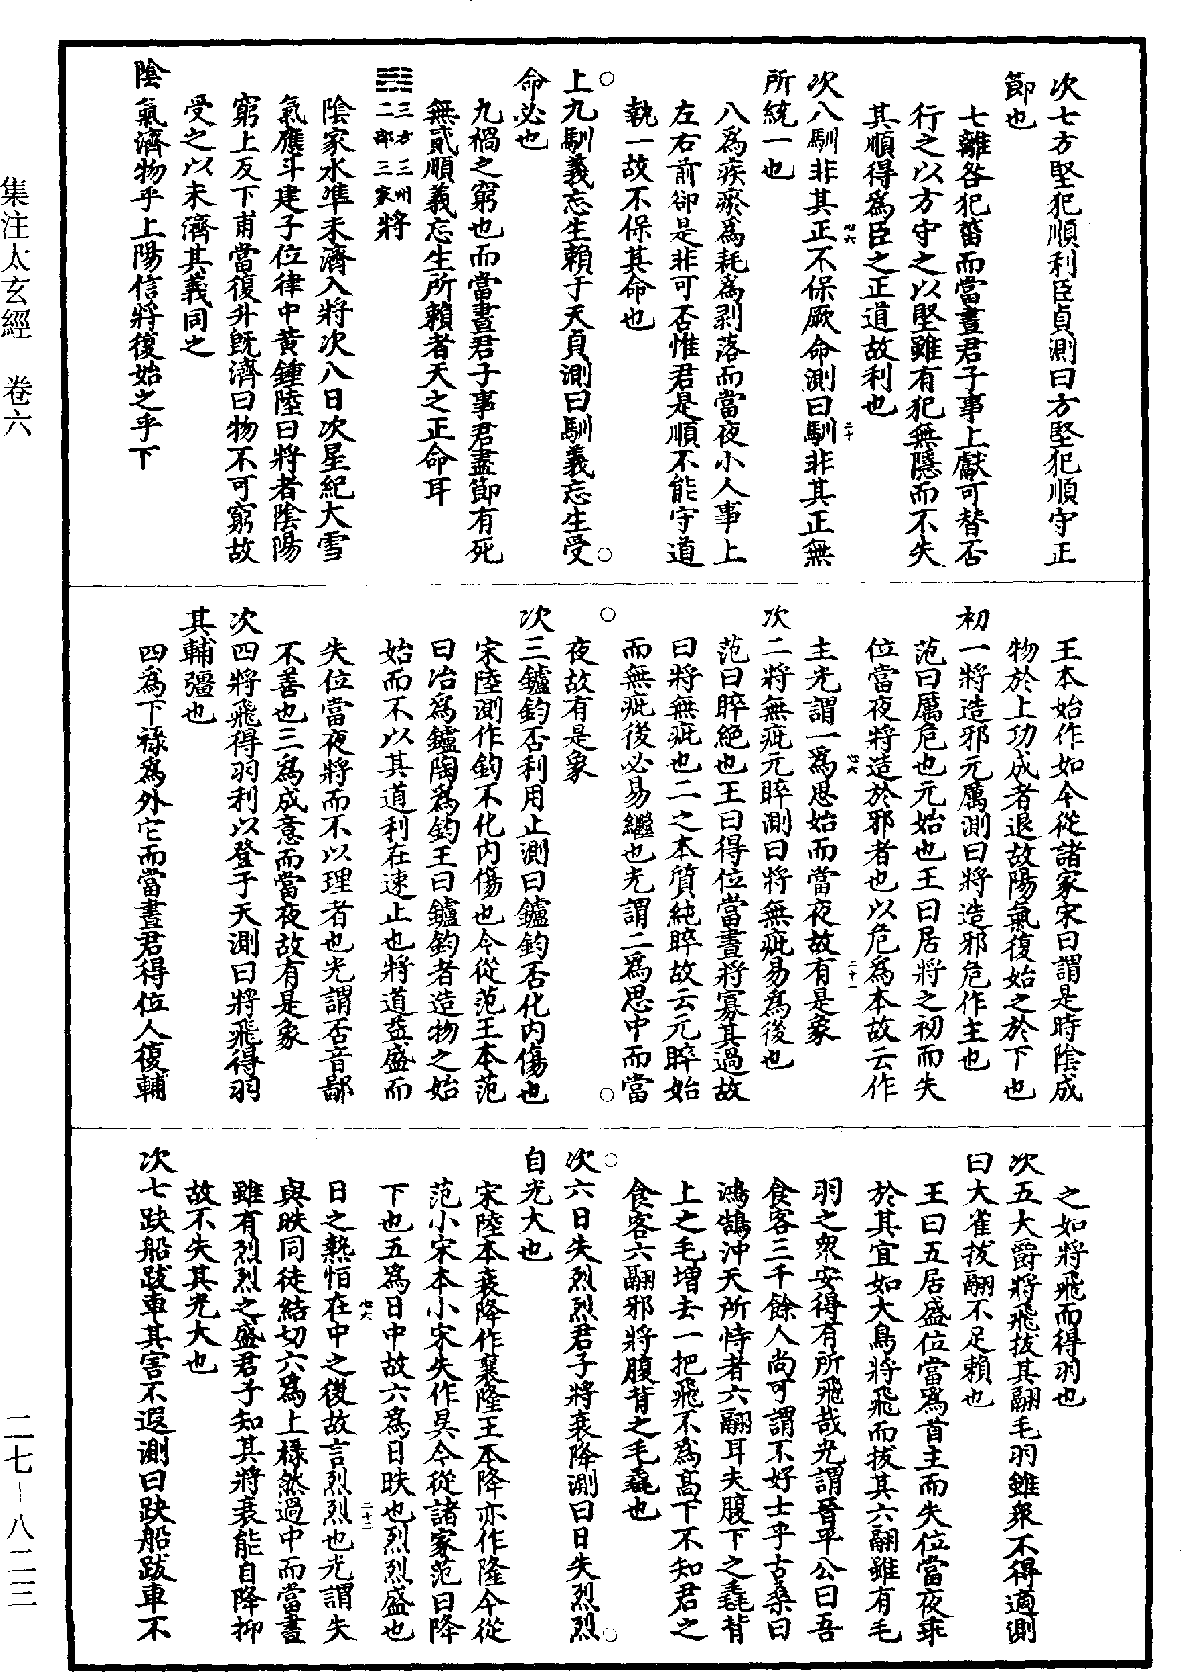 次七方堅犯順利臣貞測曰方堅犯順守正
節也
七離各犯菑而當晝君子事上獻可替否
行之以方守之以堅雖有犯無隱而不失
其順得為臣之正道故利也
次八馴非其正不保厥命測曰馴非其正無
所統一也
八為疾瘀為耗為剥落而當夜小人事上
左右前卻是非可否惟君是順不能守道
執一故不保其命也
上九馴義忘生賴于天貞測曰馴義忘生受
命必也
九禍之窮也而當晝君子事君盡節有死
無貳順義忘生所賴者天之正命耳
三方三州二部三家將
陰家水準未濟入將次八日次星紀大雪
氣應斗建子位律中黃鍾陸曰將者陰陽
窮上反下甫當復升既濟曰物不可窮故
受之以未濟其義同之
陰氣濟物乎上陽信將復始之乎下
王本始作如今從諸家宋曰謂是時陰成
物於上功成者退故陽氣復始之於下也
初一將造邪元厲測曰將造邪危作主也
范曰厲危也元始也王曰居將之初而失
位當夜將造於邪者也以危為本故云作
主光謂一為思始而當夜故有是象
次二將無疵元睟測曰將無疵易為後也
范曰睟絕也王曰得位當晝將寡其過故
曰將無疵也二之本質純睟故云元睟始
而無疵後必易繼也光謂二為思中而當
夜故有是象
次三鑪鈞否利用止測曰鑪鈞否化內傷也
宋陸測作鈞不化內傷也今從范王本范
曰冶為鑪陶為鈞王曰鑪鈞者造物之始
始而不以其道利在速止也將道益盛而
失位當夜將而不以理者也光謂否音鄙
不善也三為成意而當夜故有是象
次四將飛得羽利以登于天測曰將飛得羽
其輔彊也
四為下祿為外它而當晝君得位人復輔
之如將飛而得羽也
次五大爵將飛拔其翮毛羽雖眾不得適測
曰大雀拔翮不足賴也
王曰五居盛位當為首主而失位當夜乖
於其宜如大鳥將飛而拔其六翮雖有毛
羽之眾安得有所飛哉光謂晉平公曰吾
食客三千餘人尚可謂不好士乎古桑曰
鴻鵠沖天所恃者六翮耳夫腹下之毳背
上之毛增去一把飛不為高下不知君之
食客六翮邪將腹背之毛毳也
次六日失烈烈君子將衰降測曰日失烈烈
自光大也
宋陸本衰降作襄隆王本降亦作隆今從
范小宋本小宋失作昃今從諸家范曰降
下也五為日中故六為日昳也烈烈盛也
日之熱恒在中之後故言烈烈也光謂失
與昳同徒結切六為上祿然過中而當晝
雖有烈烈之盛君子知其將衰能自降抑
故不失其光大也
次七趹船跋車其害不遐測曰趹船跋車不
集注太玄經　卷六
二七－八二三